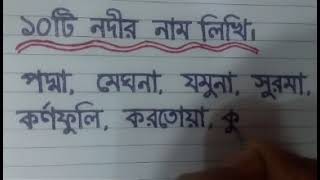 ১০টি নদীর নাম লিখি।
পদ্মা, মেঘনা, যমুনা, সুরমা,
কর্ণফুলি, করতোয়া, কু